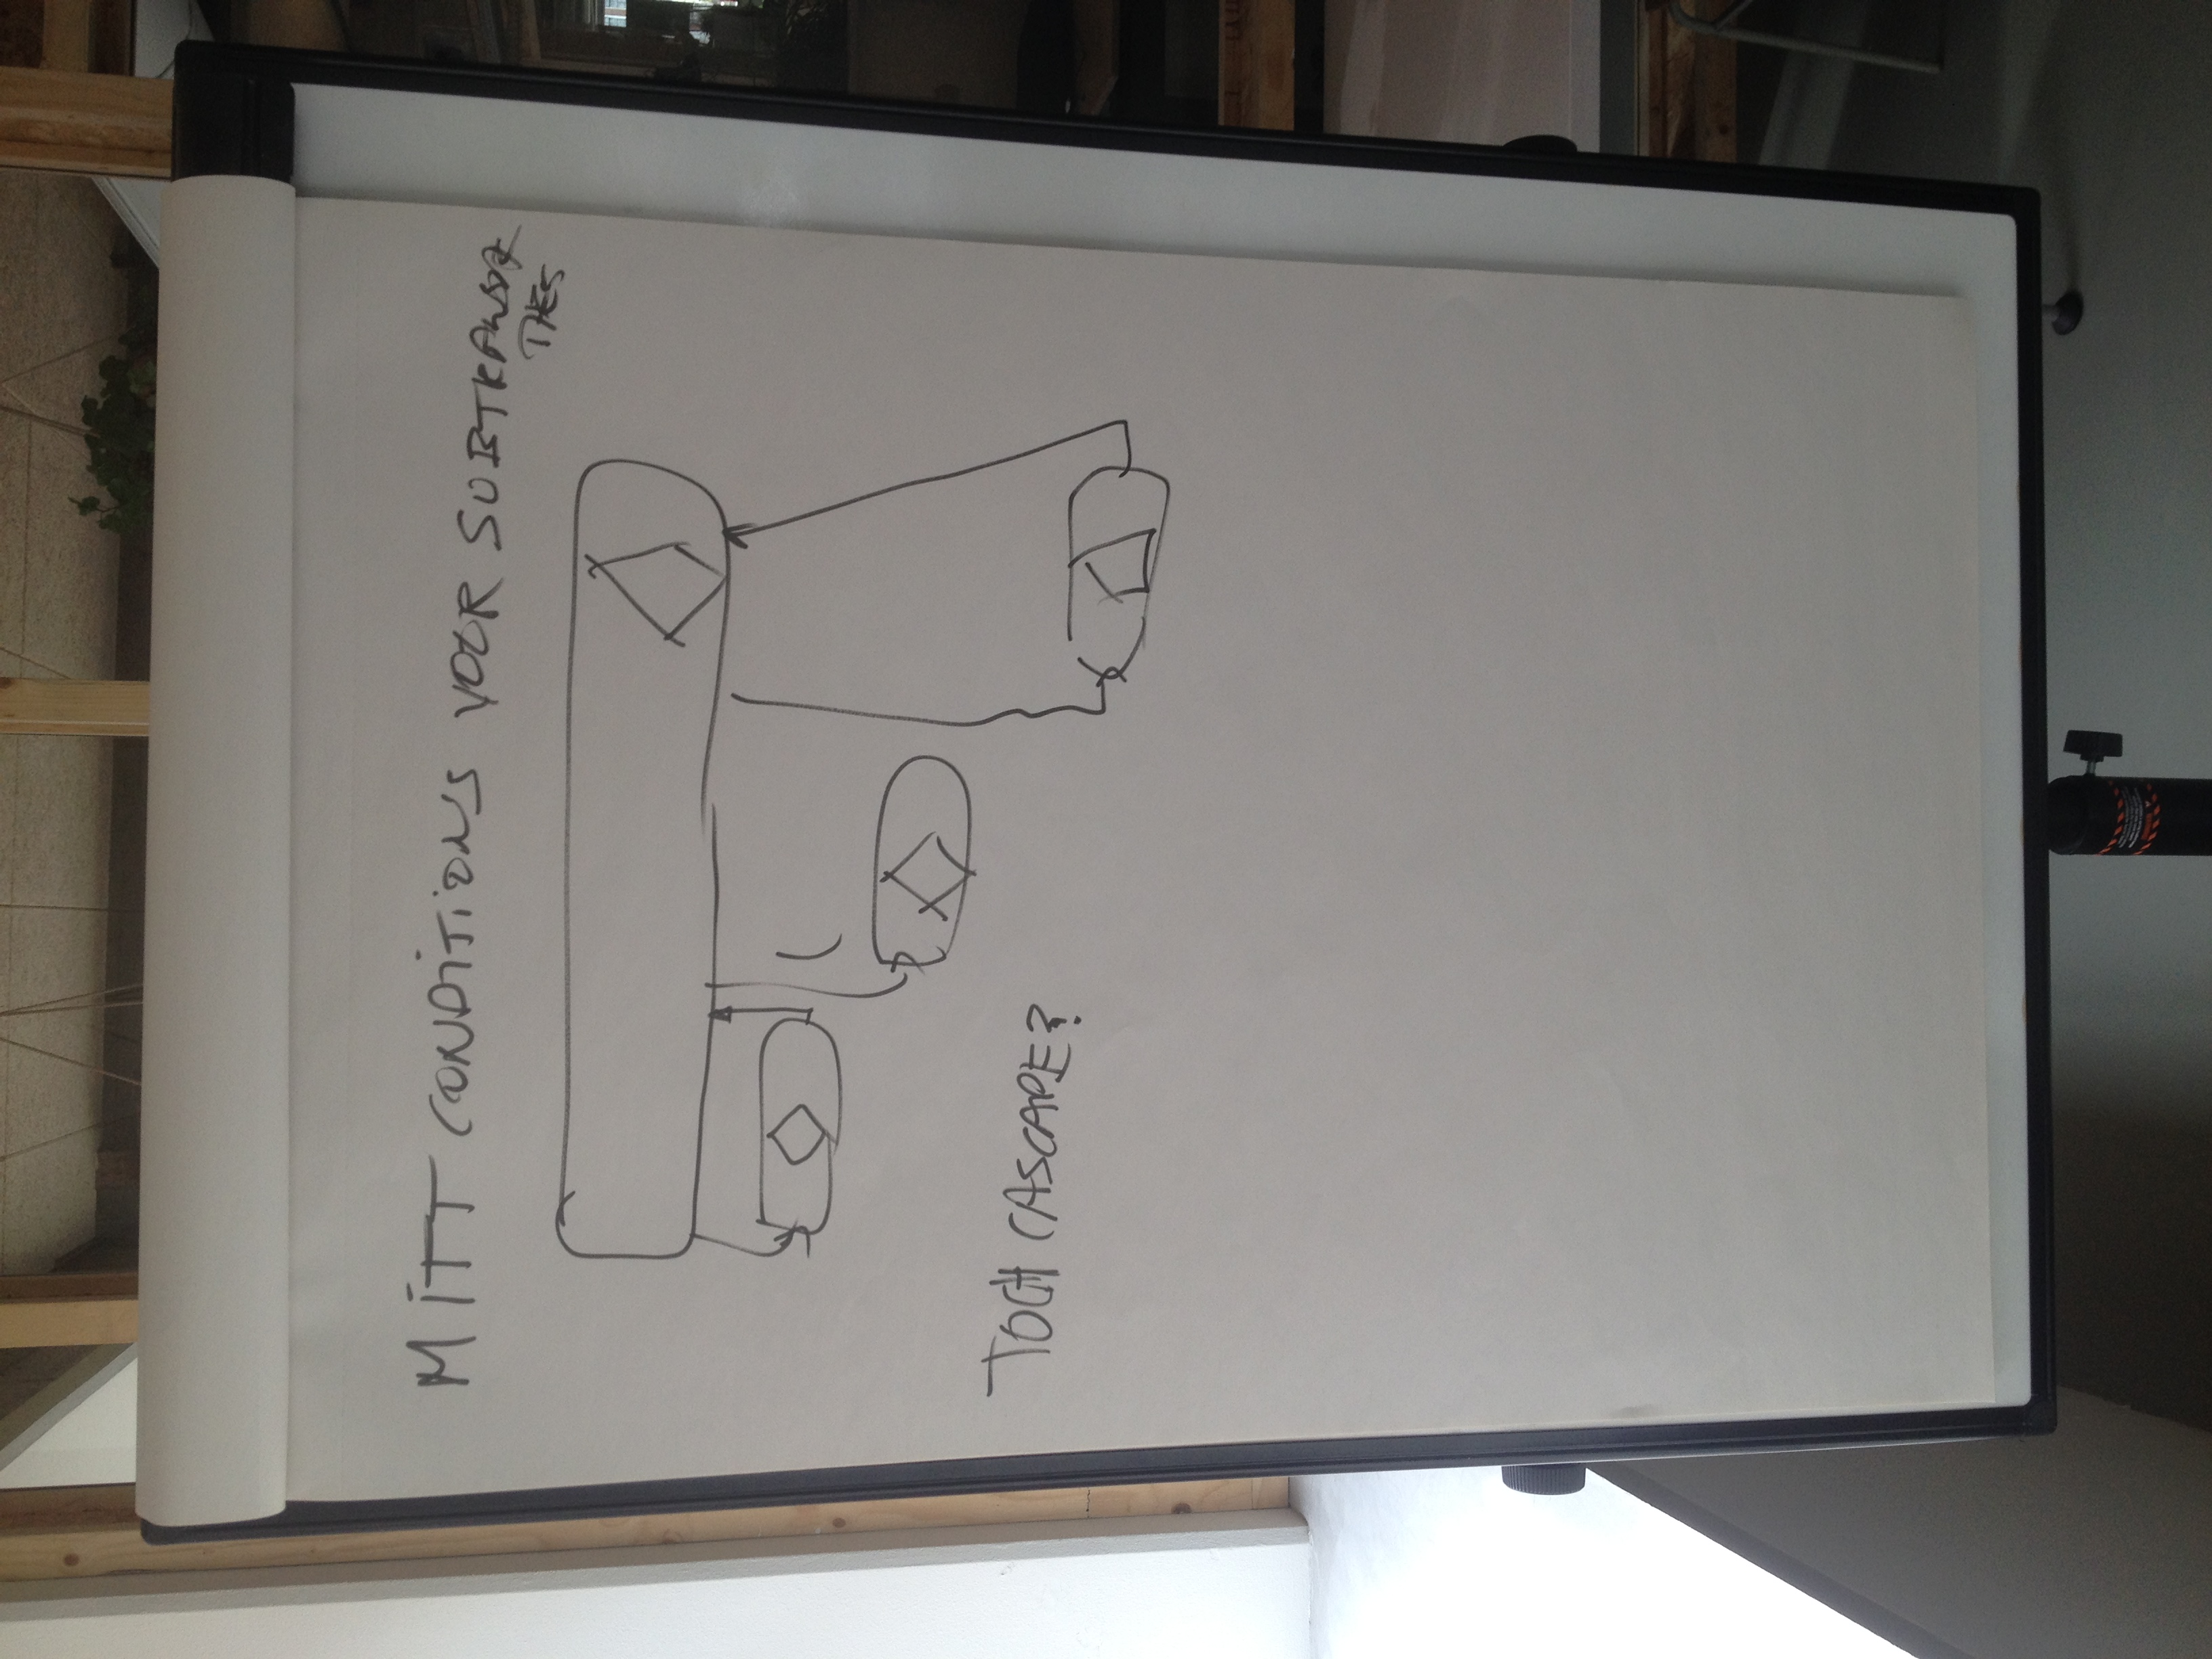 MITT CONDITIONS VOOR SUBTRANSAK
TIES
TOCH CASCADE?